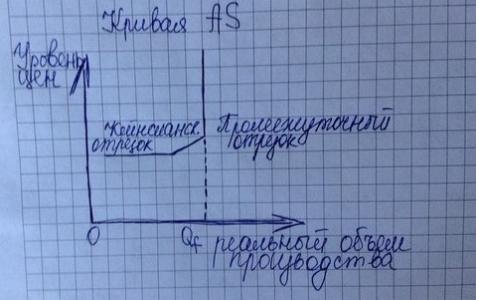 Кривая AS
Уровень
цен
Кейнсианск.
отрезок
Промежуточный
отрезок
0
Qf
реальный объем
производства